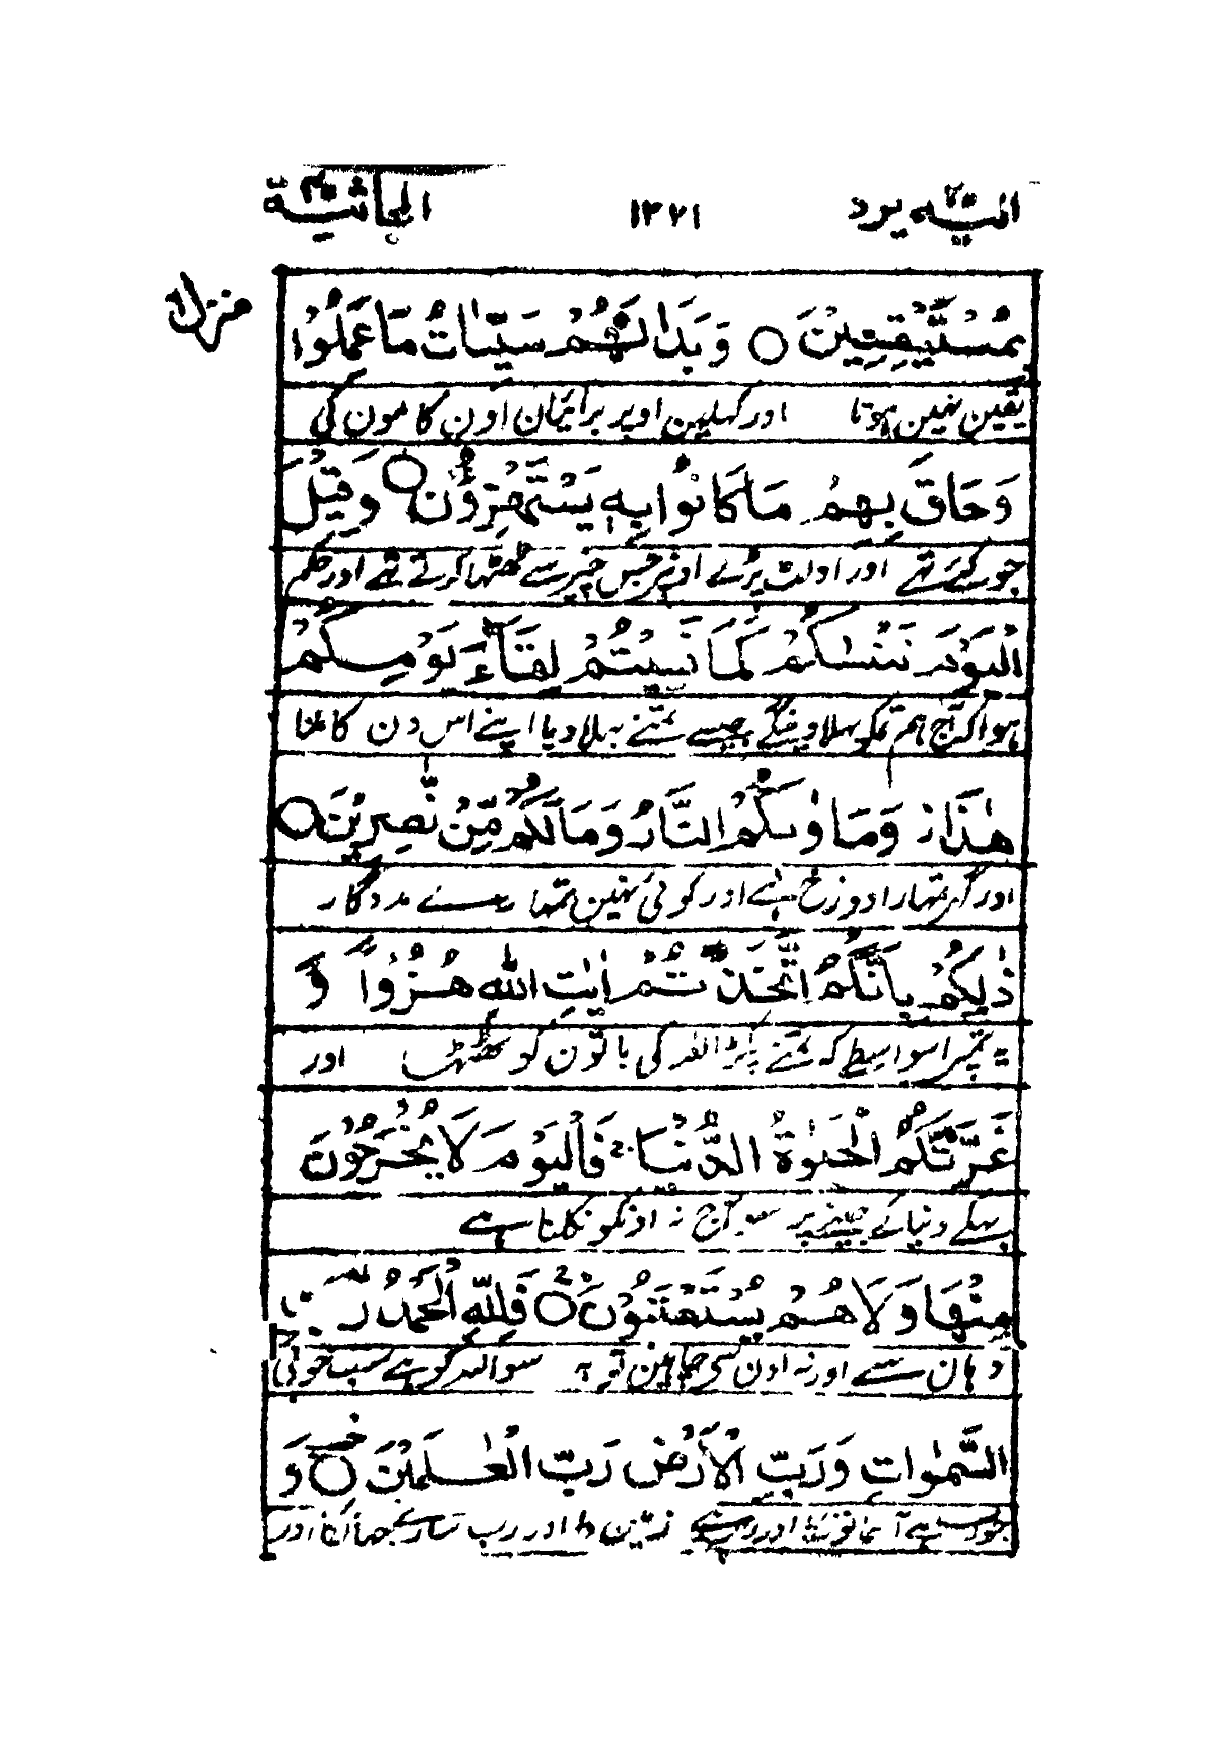 الیه یرد ۲۵ ۱۳۲۱ الجاثیة ۴۵
منزل ۶
بِمُسْتَيْقِنِيْنَ ○ وَبَدَا لَهُمْ سَيِّاٰتُ مَا عَمِلُوْا
یقین نہین ہوتا اور کہلین اوپر برائیان اون کامون کی
وَحَاقَ بِهِمْ مَا كَانُوْا بِهٖ يَسْتَهْزِءُوْنَ ○ وَقِيْلَ
جو کئے تھے اور اولٹ پڑے اونپر جس چیز سے ٹھٹھا کرتے تھے اور حکم
الْيَوْمَ نَنْسٰىكُمْ كَمَا نَسِيْتُمْ لِقَآءَ يَوْمِكُمْ
ہوا کہ آج ہم تمکو بہلا دینگے جیسے تمنے بہلا دیا اپنے اس دن کا ملنا
هٰذَا وَمَاْوٰىكُمُ النَّارُ وَمَا لَكُمْ مِّنْ نّٰصِرِيْنَ ○
اور گہر تمہارا دوزخ ہے اور کوئی نہین تمہارے مددگار
ذٰلِكُمْ بِاَنَّكُمُ اتَّخَذْتُمْ اٰيٰتِ اللّٰهِ هُزُوًا وَّ
یہ تمپر اسواسطے کہ تمنے پکڑا اللہ کی باتون کو ٹھٹھے اور
غَرَّتْكُمُ الْحَيٰوةُ الدُّنْيَا ۚ فَالْيَوْمَ لَا يُخْرَجُوْنَ
بہکے دنیا کے جینے پر سو آج نہ اونکو نکلنا ہے
مِنْهَا وَلَا هُمْ يُسْتَعْتَبُوْنَ ○ فَلِلّٰهِ الْحَمْدُ رَبِّ
وہان سے اور نہ اون سے چاہین توبہ سو اللہ کو ہے سب خوبی
السَّمٰوٰتِ وَرَبِّ الْاَرْضِ رَبِّ الْعٰلَمِيْنَ ○ وَ
جو رب ہے آسمانونکا اور رب ہے زمین کا اور رب سارے جہانکا اور